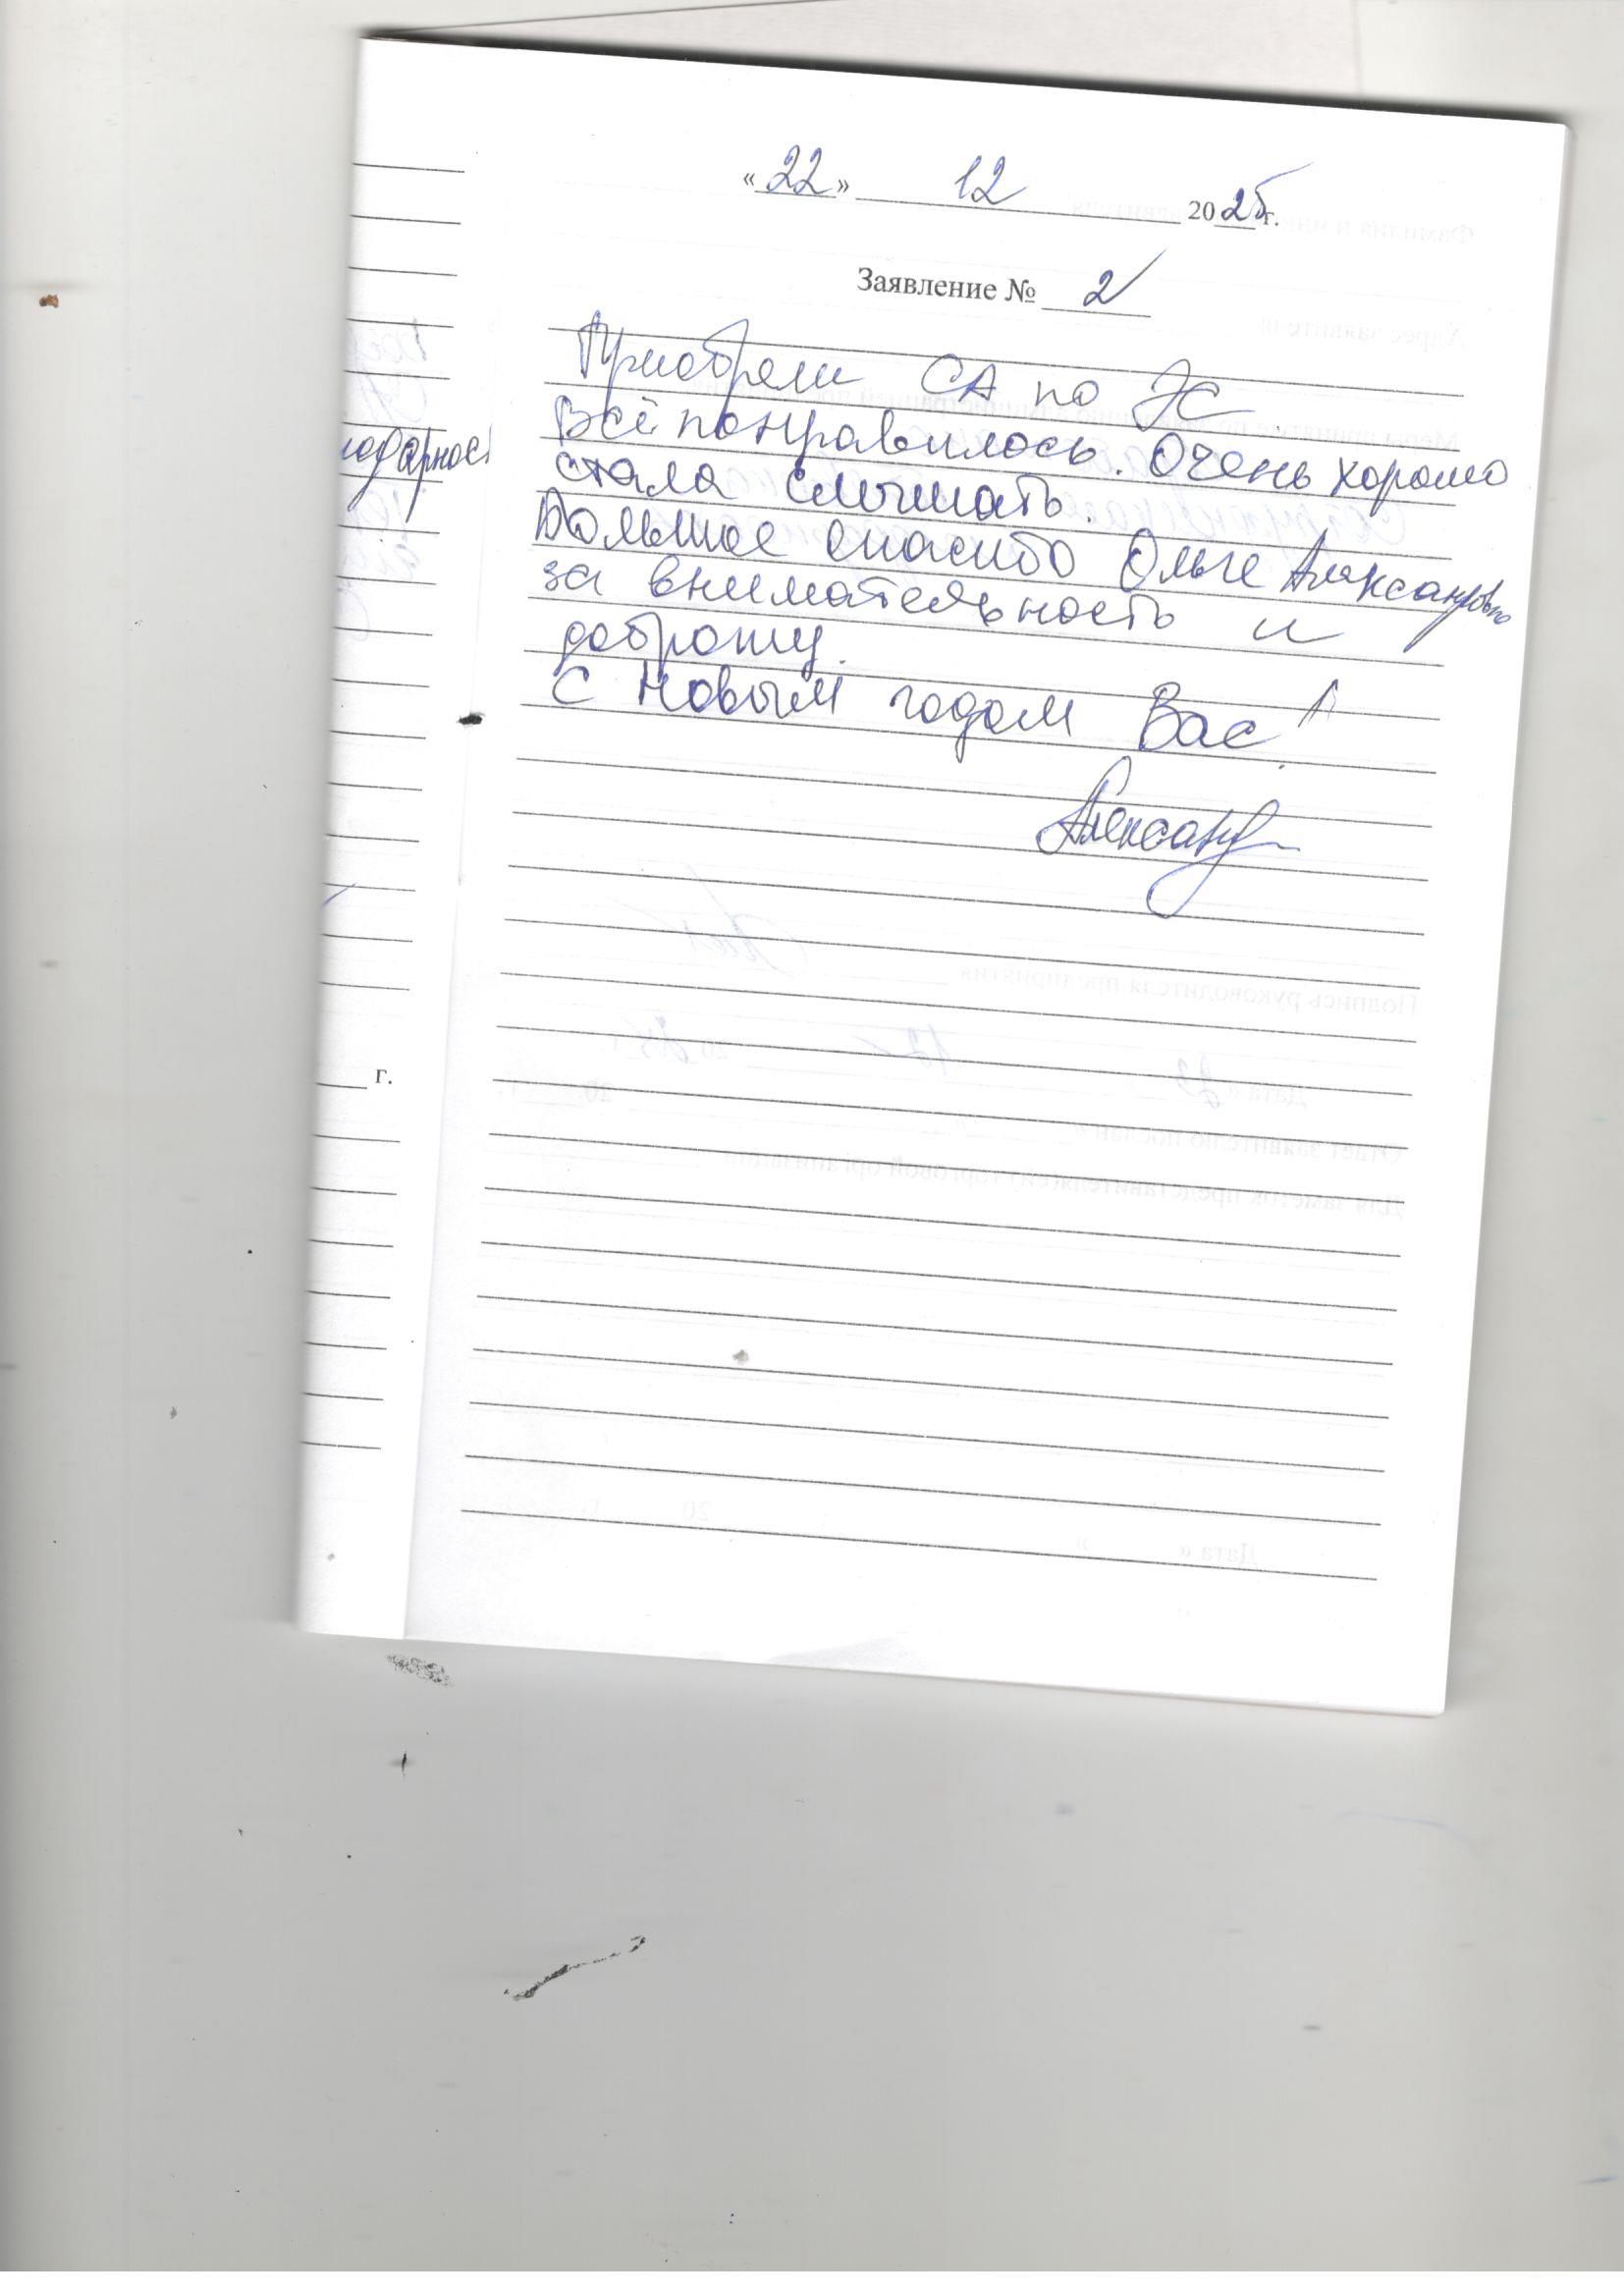 «22» 12 2025 г.
Заявление № 2
Приобрели СА по ЭС
Всё понравилось. Очень хорошо
стала слышать.
Большое спасибо Ольге Александровне
за внимательность и
доброту.
С Новым годом Вас!
Александр
г.